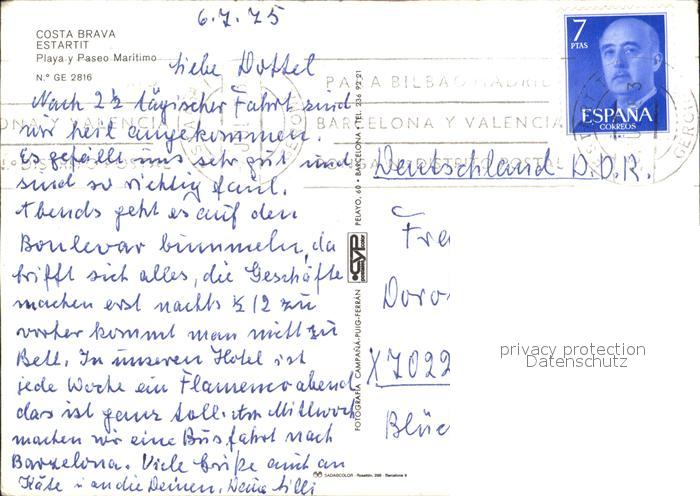 6.7.75
COSTA BRAVA
ESTARTIT
Playa y Paseo Marítimo
N.º GE 2816
liebe Dottel
Nach 2½ tägischer Fahrt sind
wir heil angekommen.
Es gefällt uns sehr gut und
sind so richtig faul.
Abends geht es auf den
Boulevar bummeln, da
trifft sich alles, die Geschäfte
machen erst nachts ½ 12 zu
vorher kommt man nitt zu
Bett. In unseren Hotel ist
jede Woche ein Flamencoabend
das ist ganz toll. Am Mittwoch
machen wir eine Busfahrt nach
Barzelona. Viele Grüße auch an
Käte u an die Deinen, Deine Lilli
FOTOGRAFIA CAMPAÑÁ-PUIG-FERRÁN
PELAYO, 60 • BARCELONA • TEL. 236 92 21
SADAGCOLOR - Rosellón, 298 - Barcelona
7
PTAS
ESPAÑA
CORREOS
PARA BILBAO MADRID
BARCELONA Y VALENCIA
DISTRITO POSTAL
ONA Y VALENCIA
Deutschland D.D.R.
Fra
Doro
X7022
Blüc
privacy protection
Datenschutz